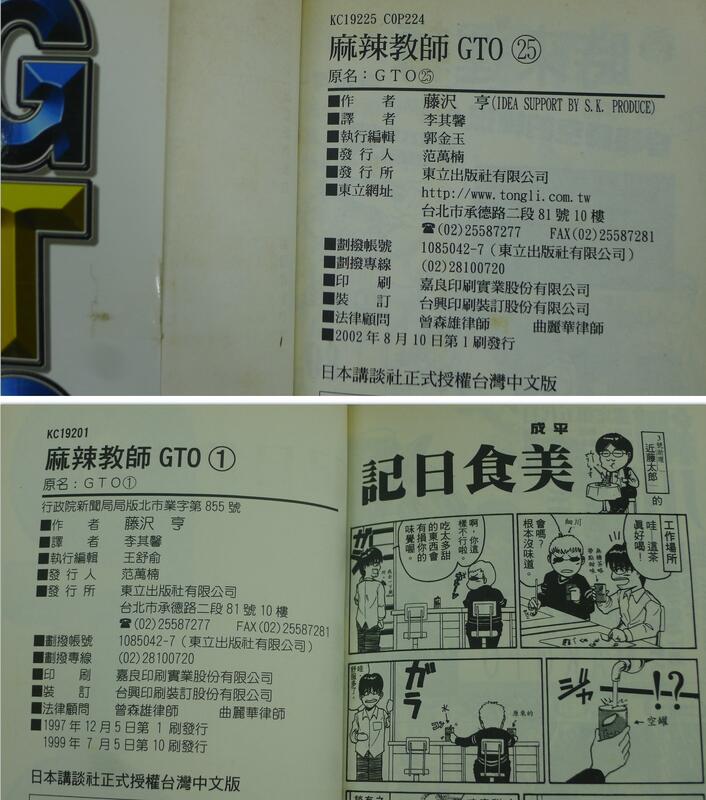 GT
KC19225 COP224
麻辣教師 GTO ㉕
原名：GTO㉕
■作　者　藤沢　亨(IDEA SUPPORT BY S.K. PRODUCE)
■譯　者　李其馨
■執行編輯　郭金玉
■發行人　范萬楠
■發行所　東立出版社有限公司
■東立網址　http://www.tongli.com.tw
台北市承德路二段81號10樓
☎(02)25587277　FAX(02)25587281
■劃撥帳號　1085042-7（東立出版社有限公司）
■劃撥專線　(02)28100720
■印　刷　嘉良印刷實業股份有限公司
■裝　訂　台興印刷裝訂股份有限公司
■法律顧問　曾森雄律師　曲麗華律師
■2002年8月10日第1刷發行
日本講談社正式授權台灣中文版
KC19201
麻辣教師 GTO ①
原名：GTO①
行政院新聞局局版北市業字第855號
■作　者　藤沢　亨
■譯　者　李其馨
■執行編輯　王舒俞
■發行人　范萬楠
■發行所　東立出版社有限公司
台北市承德路二段81號10樓
☎(02)25587277　FAX(02)25587281
■劃撥帳號　1085042-7（東立出版社有限公司）
■劃撥專線　(02)28100720
■印　刷　嘉良印刷實業股份有限公司
■裝　訂　台興印刷裝訂股份有限公司
■法律顧問　曾森雄律師　曲麗華律師
■1997年12月5日第1刷發行
1999年7月5日第10刷發行
日本講談社正式授權台灣中文版
近藤太郎
的
平成
美食日記
工作場所
哇—這茶
真好喝！
細川
會嗎？
根本沒味道。
啊，你這
樣不行啦。
吃太多甜
的東西會
有損你的
味覺喔。
!?
←空罐
ジャ
原來的
水
ガラ